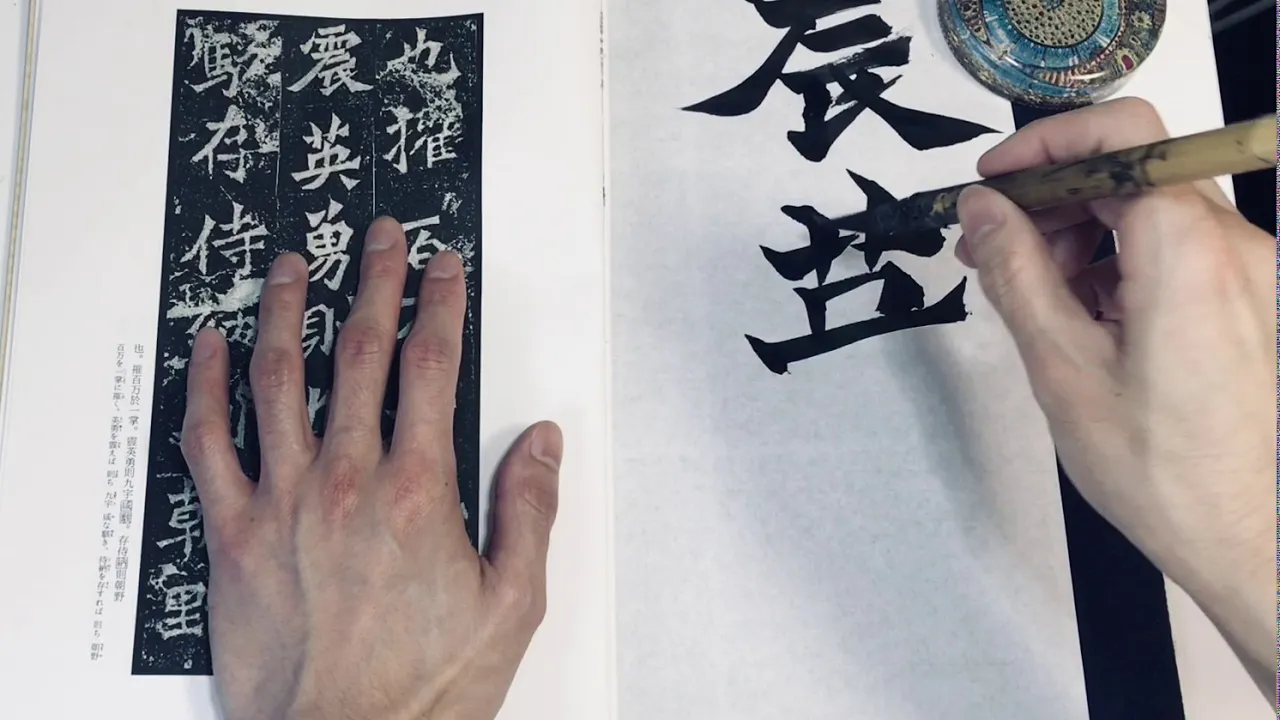 也摧百
震英勇則
駭存侍納
朝
也。摧百万於一掌。震英勇則九宇咸駭。存侍納則朝野
百万を一掌に摧く。英勇を震えば 則ち 九宇 咸な駭き、侍納を存すれば 則ち 朝野